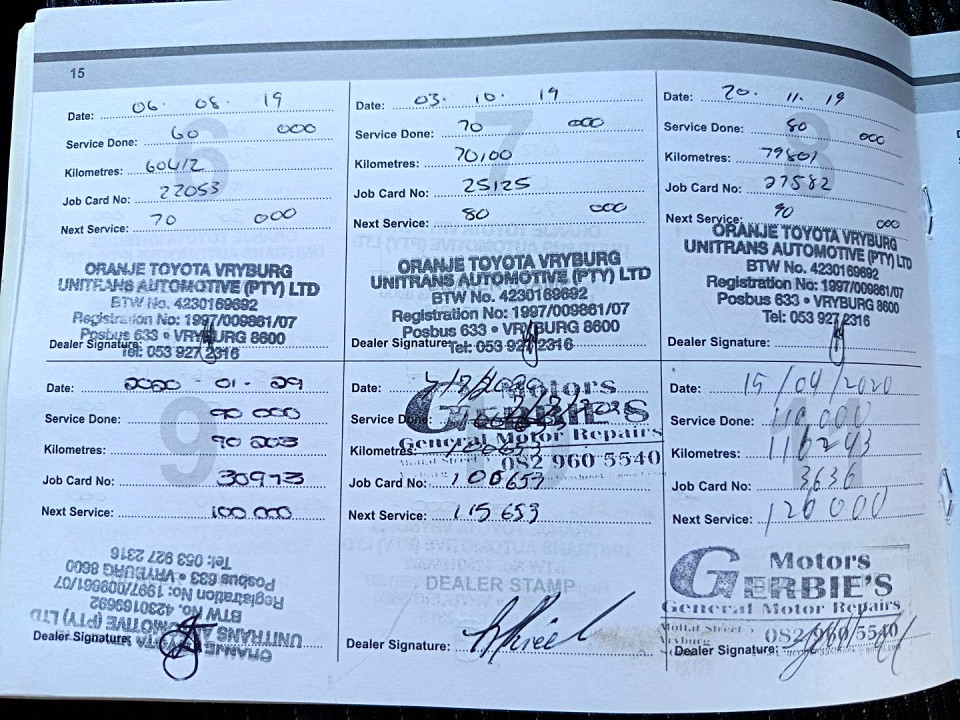 15
Date: 06. 08. 19
Service Done: 60 000
Kilometres: 60412
Job Card No: 22053
Next Service: 70 000
ORANJE TOYOTA VRYBURG
UNITRANS AUTOMOTIVE (PTY) LTD
BTW No. 4230169692
Registration No: 1997/009861/07
Posbus 633 • VRYBURG 8600
Tel: 053 927 2316
Dealer Signature:
Date: 03. 10. 19
Service Done: 70 000
Kilometres: 70100
Job Card No: 25125
Next Service: 80 000
ORANJE TOYOTA VRYBURG
UNITRANS AUTOMOTIVE (PTY) LTD
BTW No. 4230169692
Registration No: 1997/009861/07
Posbus 633 • VRYBURG 8600
Dealer Signature: Tel: 053 927 2316
Date: 20. 11. 19
Service Done: 80 000
Kilometres: 79801
Job Card No: 27582
Next Service: 90 000
ORANJE TOYOTA VRYBURG
UNITRANS AUTOMOTIVE (PTY) LTD
BTW No. 4230169692
Registration No: 1997/009861/07
Posbus 633 • VRYBURG 8600
Tel: 053 927 2316
Dealer Signature:
9
Date: 2020 - 01 - 29
Service Done: 90 000
Kilometres: 90 203
Job Card No: 30973
Next Service: 100 000
ORANJE TOYOTA
UNITRANS AUTOMOTIVE (PTY) LTD
BTW No. 4230169692
Registration No: 1997/009861/07
Posbus 633 • VRYBURG 8600
Tel: 053 927 2316
Dealer Signature:
Date:
Motors
GERBIE'S
Service Done:
General Motor Repairs
Kilometres:
082 960 5540
Job Card No: 100653
Next Service: 115 653
DEALER STAMP
Dealer Signature:
Date: 15/04/2020
Service Done: 110 000
Kilometres: 110243
Job Card No: 3636
Next Service: 120000
Motors
GERBIE'S
General Motor Repairs
082 960 5540
Dealer Signature: